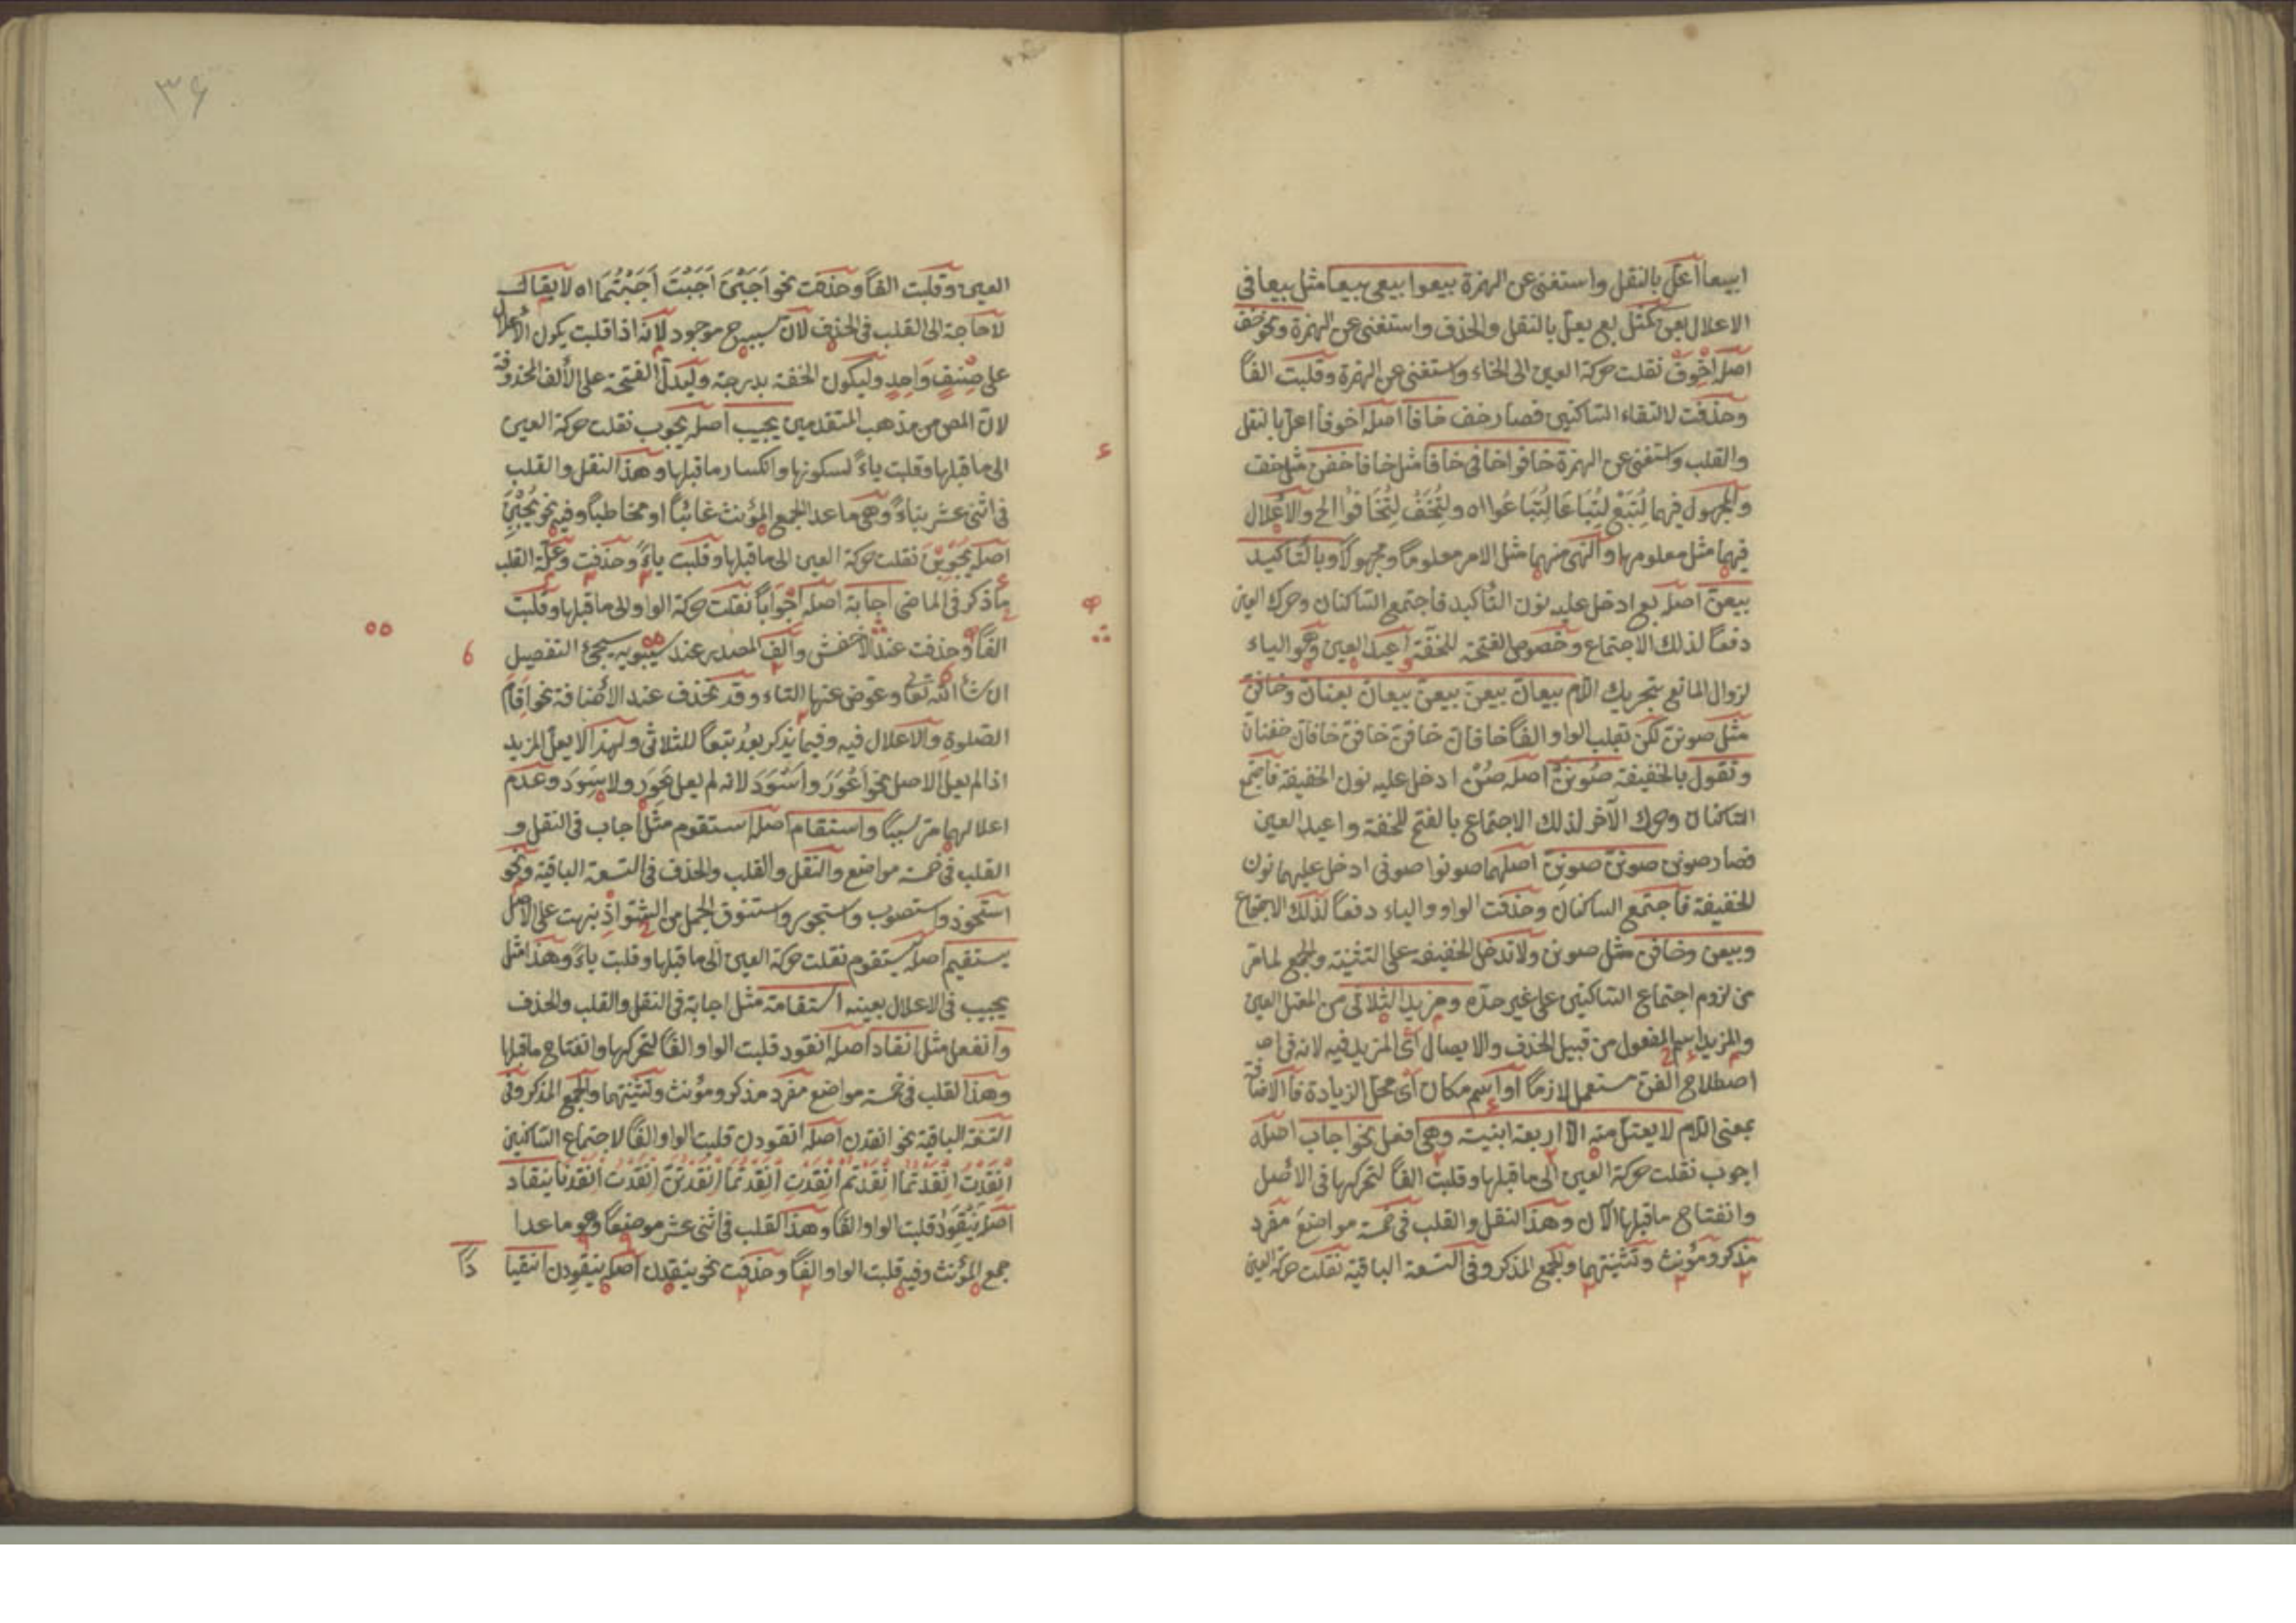 ابيعا أعل بالنقل واستغنى عن الهمزة بيعوا بيعى بيعا مثل بيعا فى
الاعلال بعن كمثل بع يعل بالنقل والحذف واستغنى عن الهمزة ونحو خف
اصله اخوف نقلت حركة العين الى الخاء واستغنى عن الهمزة وقلبت الفاً
وحذفت لالتقاء الساكنين فصار خف خافا اصله اخوفا اعل بالنقل
والقلب واستغنى عن الهمزة خافوا خافى خافا مثل خافا خفن مثل خف
والمجهول فيهما لِتُبَعْ لِتُبَاعَا لِتُبَاعُوا اه ولِتُخَفْ لِتُخَافُوا الخ والاعلال
فيهما مثل معلومها والنهى منهما مثل الامر معلوماً ومجهولاً وبالتأكيد
بيعن اصله بع ادخل عليه نون التأكيد فاجتمع الساكنان وحرك العين
دفعاً لذلك الاجتماع وخصوص الفتحة للخفّة اعيد العين وهو الياء
لزوال المانع بتحريك اللام بيعان بيعن بيعن بيعان بعنان وخافن
مثل صونن لكن تقلب الواو الفاً خافان خافن خافن خافان خفنان
وتقول بالخفيفة صُونَنْ اصله صُنْ ادخل عليه نون الخفيفة فاجتمع
الساكنان وحرك الآخر لذلك الاجتماع بالفتح للخفة واعيد العين
فصار صونن صونن صونن اصلهما صونوا صونى ادخل عليهما نون
الخفيفة فاجتمع الساكنان وحذفت الواو والياء دفعاً لذلك الاجتماع
وبيعن وخافن مثل صونن ولا تدخل الخفيفة على التثنية والجمع لما مر
من لزوم اجتماع الساكنين على غير حدّه ومزيد الثلاثى من المعتل العين
والمزيد اسم المفعول من قبيل الحذف والايصال أى المزيد فيه لانه فى اص
اصطلاح الفن مستعمل لازماً أو اسم مكان أى محل الزيادة فالاضافة
بمعنى اللام لا يعتل منه الا اربعة ابنية وهى افعل نحو اجاب اصله
اجوب نقلت حركة العين الى ما قبلها وقلبت الفاً لتحركها فى الاصل
وانفتاح ما قبلها الآن وهذا النقل والقلب فى خمسة مواضع مفرد
مذكر ومؤنث وتثنيتهما والجمع المذكر وفى التسعة الباقية نقلت حركة العين
٣٦
العين وقلبت الفاً وحذفت نحو اَجَبْنَ اَجَبْتَ اَجَبْتُمَا اه لا يقال
لا حاجة الى القلب فى الحذف لان سببه موجود لانه اذا قلبت يكون الاعلال
على صنفٍ واحدٍ وليكون الخفة بدرجة وليدل الفتحة على الألف المحذوفة
لان المص من مذهب المتقدمين يجيب اصله يجوب نقلت حركة العين
الى ما قبلها وقلبت ياءً لسكونها وانكسار ما قبلها وهذا النقل والقلب
فى اثنى عشر بناءً وهى ما عدا الجمع المؤنث غائباً او مخاطباً وفيه نحو يُجِبْنَ
اصله يُجْوِبْنَ نقلت حركة العين الى ما قبلها وقلبت ياءً وحذفت وعلة القلب
ما ذكر فى الماضى اجابة اصله اجواباً نقلت حركة الواو الى ما قبلها وقلبت
الفاً وحذفت عند الاخفش والف المصدر عند سيبويه سيجئ التفصيل
ان شاء الله تعالى وعوّض عنها التاء وقد تحذف عند الاضافة نحو اقام
الصلوة والاعلال فيه وفيما يذكر بعد تبعاً للثلاثى ولهذا لا يعلّ المزيد
اذا لم يعل الاصل نحو اَعْوَرَ واَسْوَدَ لانه لم يعل عَوِرَ ولا سَوِدَ وعدم
اعلالهما مر سببا واستقام اصله استقوم مثل اجاب فى النقل و
القلب فى خمسة مواضع والنقل والقلب والحذف فى التسعة الباقية ونحو
استحوذ واستصوب واستجوب واستنوق الجمل من الشواذ نبهت على الاصل
يستقيم اصله يستقوم نقلت حركة العين الى ما قبلها وقلبت ياءً وهذا مثل
يجيب فى الاعلال بعينه استقامة مثل اجابة فى النقل والقلب والحذف
وانفعل مثل انقاد اصله انقود قلبت الواو الفاً لتحركها وانفتاح ما قبلها
وهذا القلب فى خمسة مواضع مفرد مذكر ومؤنث وتثنيتهما والجمع المذكر وفى
التسعة الباقية نحو انقدن اصله انقودن قلبت الواو الفاً لاجتماع الساكنين
اِنْقَدْتَ اِنْقَدْتُمَا اِنْقَدْتُمْ اِنْقَدْتِ اِنْقَدْتُمَا اِنْقَدْتُنَّ اِنْقَدْتُ اِنْقَدْنَا ينقاد
اصله يَنْقَوِدُ قلبت الواو الفاً وهذا القلب فى اثنى عشر موضعاً وهو ما عدا
جمع المؤنث وفيه قلبت الواو الفاً وحذفت نحو ينقدن اصله ينقودن انقيا
داً